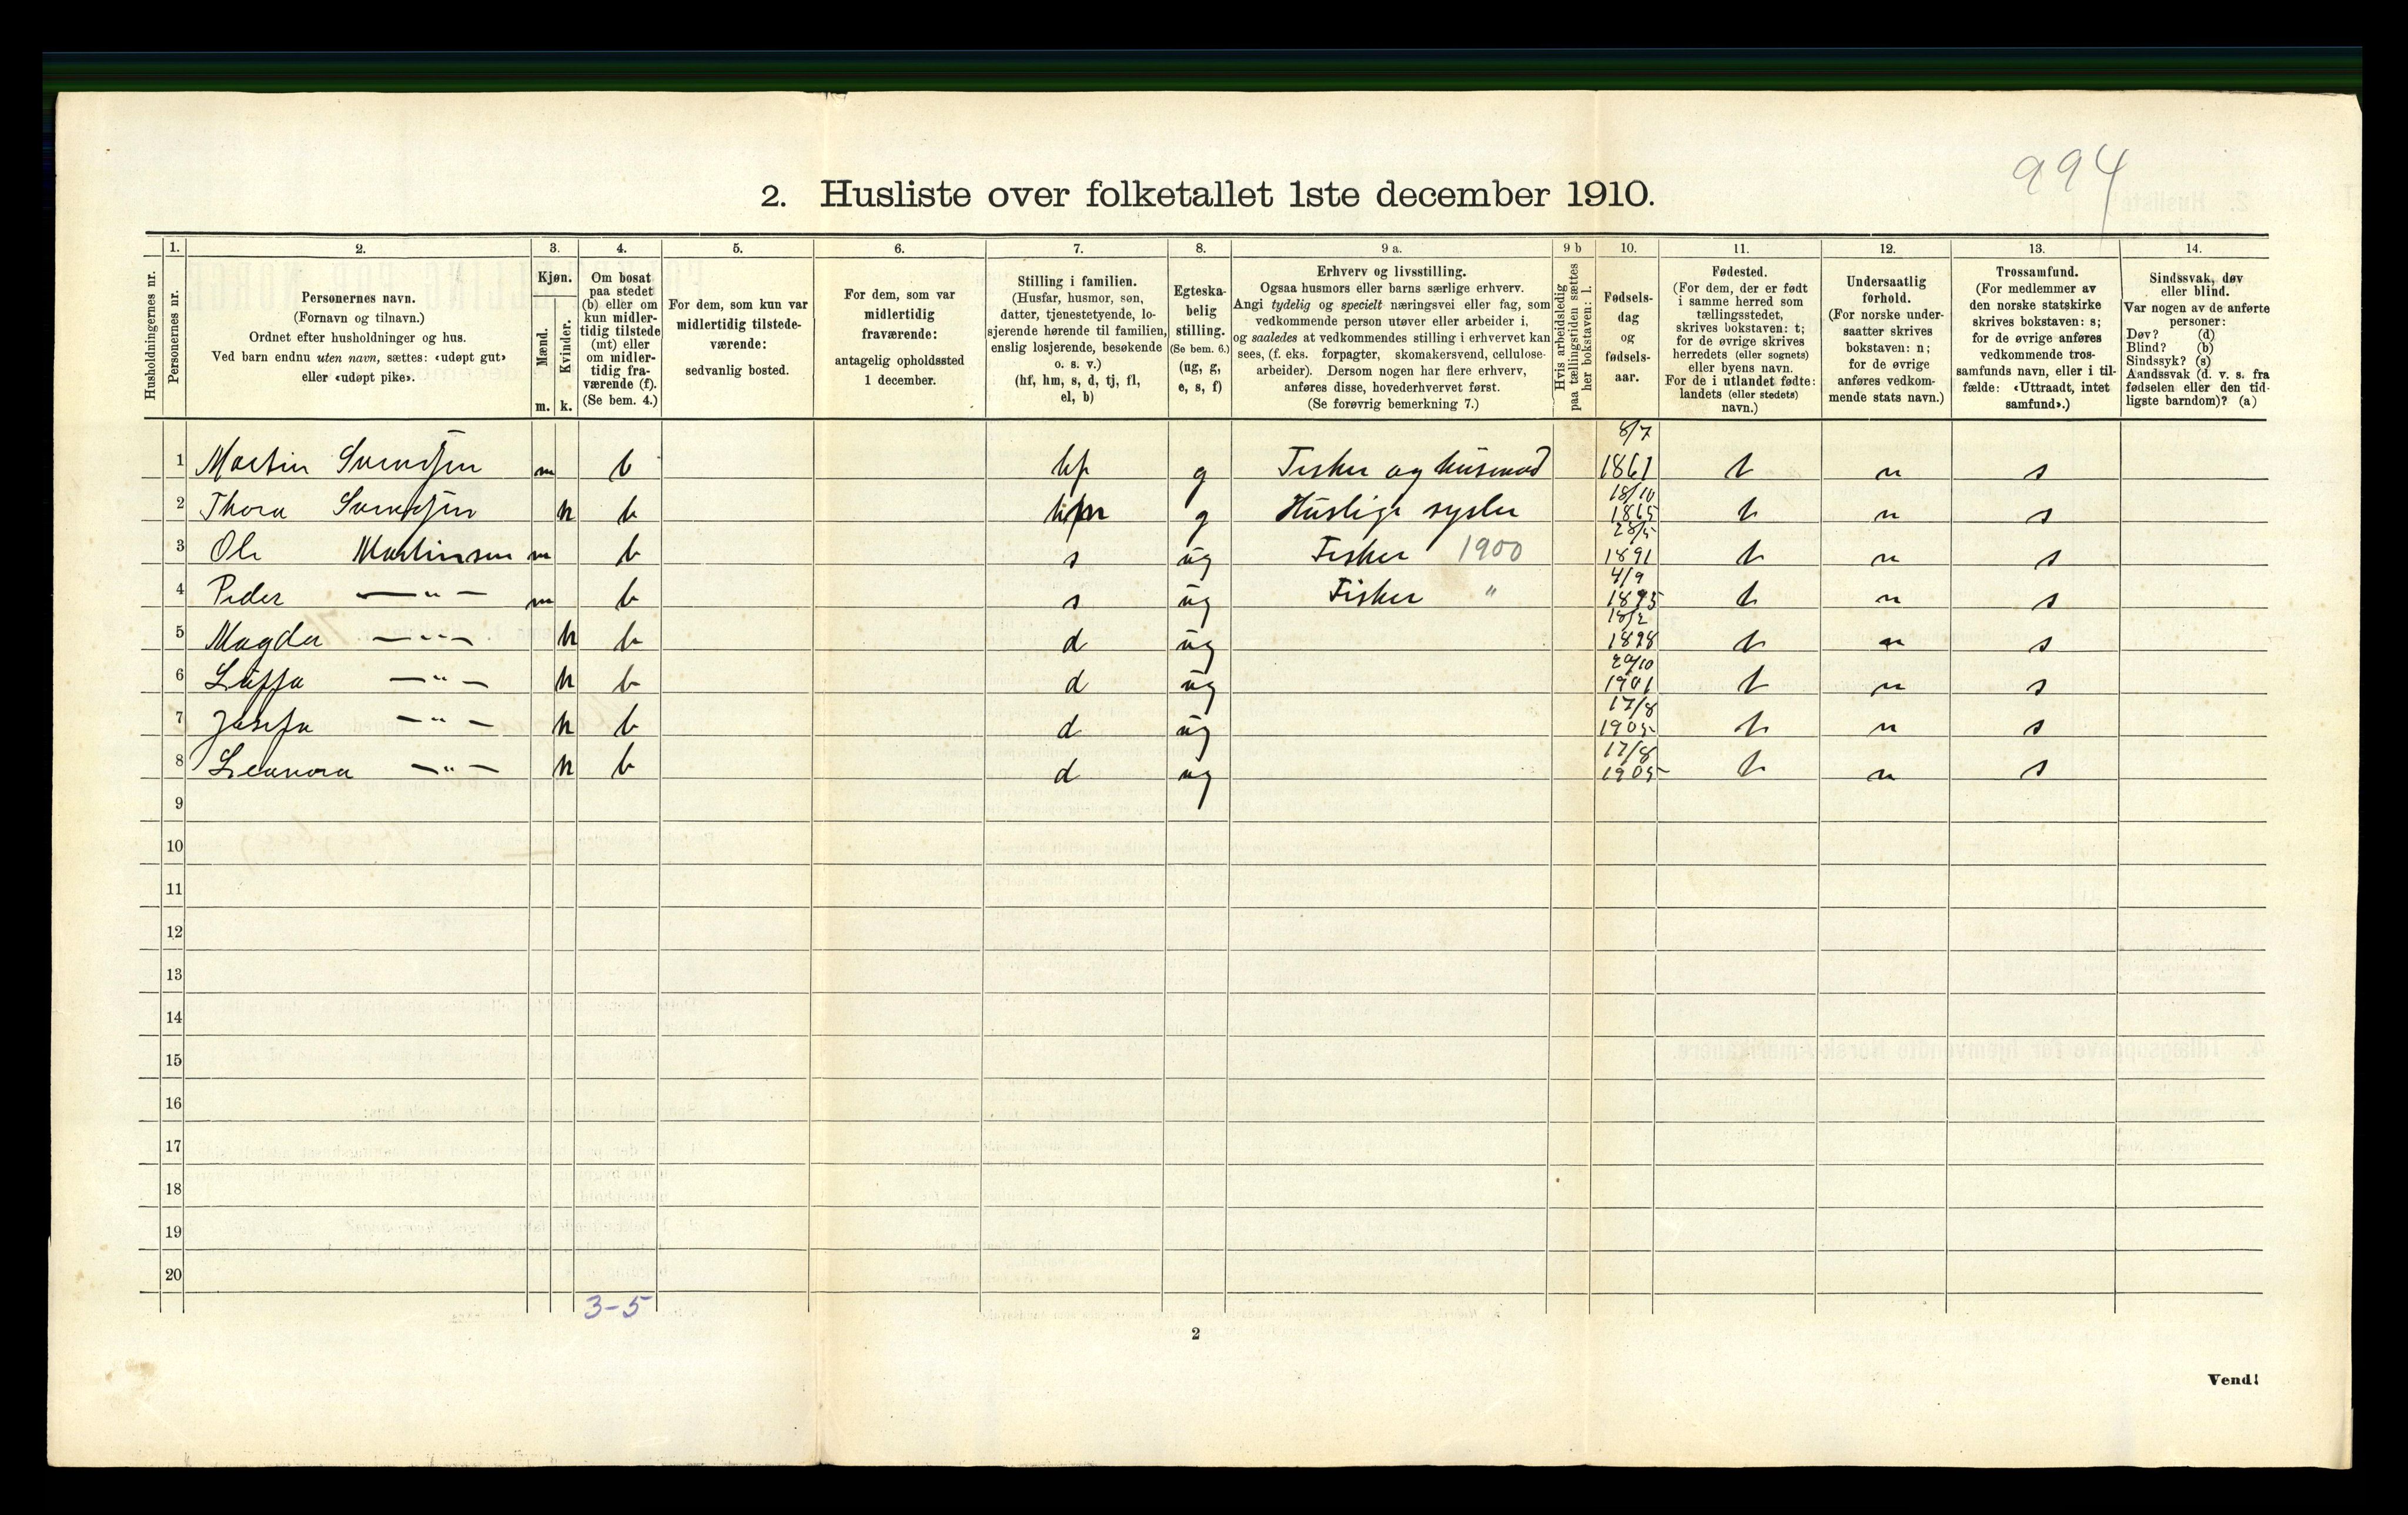 994
2. Husliste over folketallet 1ste december 1910.
Husholdningernes nr.
1. Personernes nr.
2. Personernes navn. (Fornavn og tilnavn.) Ordnet efter husholdninger og hus. Ved barn endnu uten navn, sættes: «udøpt gut» eller «udøpt pike».
3. Kjøn. Mænd. m. Kvinder. k.
4. Om bosat paa stedet (b) eller om kun midlertidig tilstede (mt) eller om midlertidig fraværende (f). (Se bem. 4.)
5. For dem, som kun var midlertidig tilstedeværende: sedvanlig bosted.
6. For dem, som var midlertidig fraværende: antagelig opholdssted 1 december.
7. Stilling i familien. (Husfar, husmor, søn, datter, tjenestetyende, losjerende hørende til familien, enslig losjerende, besøkende o. s. v.) (hf, hm, s, d, tj, fl, el, b)
8. Egteskabelig stilling. (Se bem. 6.) (ug, g, e, s, f)
9 a. Erhverv og livsstilling. Ogsaa husmors eller barns særlige erhverv. Angi tydelig og specielt næringsvei eller fag, som vedkommende person utøver eller arbeider i, og saaledes at vedkommendes stilling i erhvervet kan sees, (f. eks. forpagter, skomakersvend, cellulosearbeider). Dersom nogen har flere erhverv, anføres disse, hovederhvervet først. (Se forøvrig bemerkning 7.)
9 b Hvis arbeidsledig paa tællingstiden sættes her bokstaven: l.
10. Fødselsdag og fødselsaar.
11. Fødested. (For dem, der er født i samme herred som tællingsstedet, skrives bokstaven: t; for de øvrige skrives herredets (eller sognets) eller byens navn. For de i utlandet fødte: landets (eller stedets) navn.)
12. Undersaatlig forhold. (For norske undersaatter skrives bokstaven: n; for de øvrige anføres vedkommende stats navn.)
13. Trossamfund. (For medlemmer av den norske statskirke skrives bokstaven: s; for de øvrige anføres vedkommende trossamfunds navn, eller i tilfælde: «Uttraadt, intet samfund».)
14. Sindssvak, døv eller blind. Var nogen av de anførte personer: Døv? (d) Blind? (b) Sindssyk? (s) Aandssvak (d. v. s. fra fødselen eller den tidligste barndom)? (a)
1 Martin Svendsen m b hf g Fisker og husmand 8/7 1861 t n s
2 Thora Svendsen k b hm g Huslige sysler 18/10 1865 t n s
3 Ole Martinsen m b s ug Fisker 1900 28/5 1891 t n s
4 Peder —"— m b s ug Fisker " 4/9 1895 t n s
5 Magda —"— k b d ug 18/2 1898 t n s
6 —"— k b d ug 29/10 1901 t n s
7 Josefa —"— k b d ug 17/8 1905 t n s
8 Leonora —"— k b d ug 17/8 1905 t n s
9
10
11
12
13
14
15
16
17
18
19
20
3-5
2
Vend!